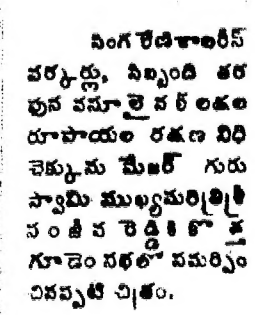 సింగ రేణికాలరీస్
వర్కర్లు, సిబ్బంది తర
ఫున వసూలై న లక్షల
రూపాయల రక్షణ నిధి
చెక్కును మేజర్ గురు
స్వామి ముఖ్యమంత్రి శ్రీ
సంజీవ రెడ్డికి కొత్త
గూడెం సభలో సమర్పిం
చినప్పటి చిత్రం.